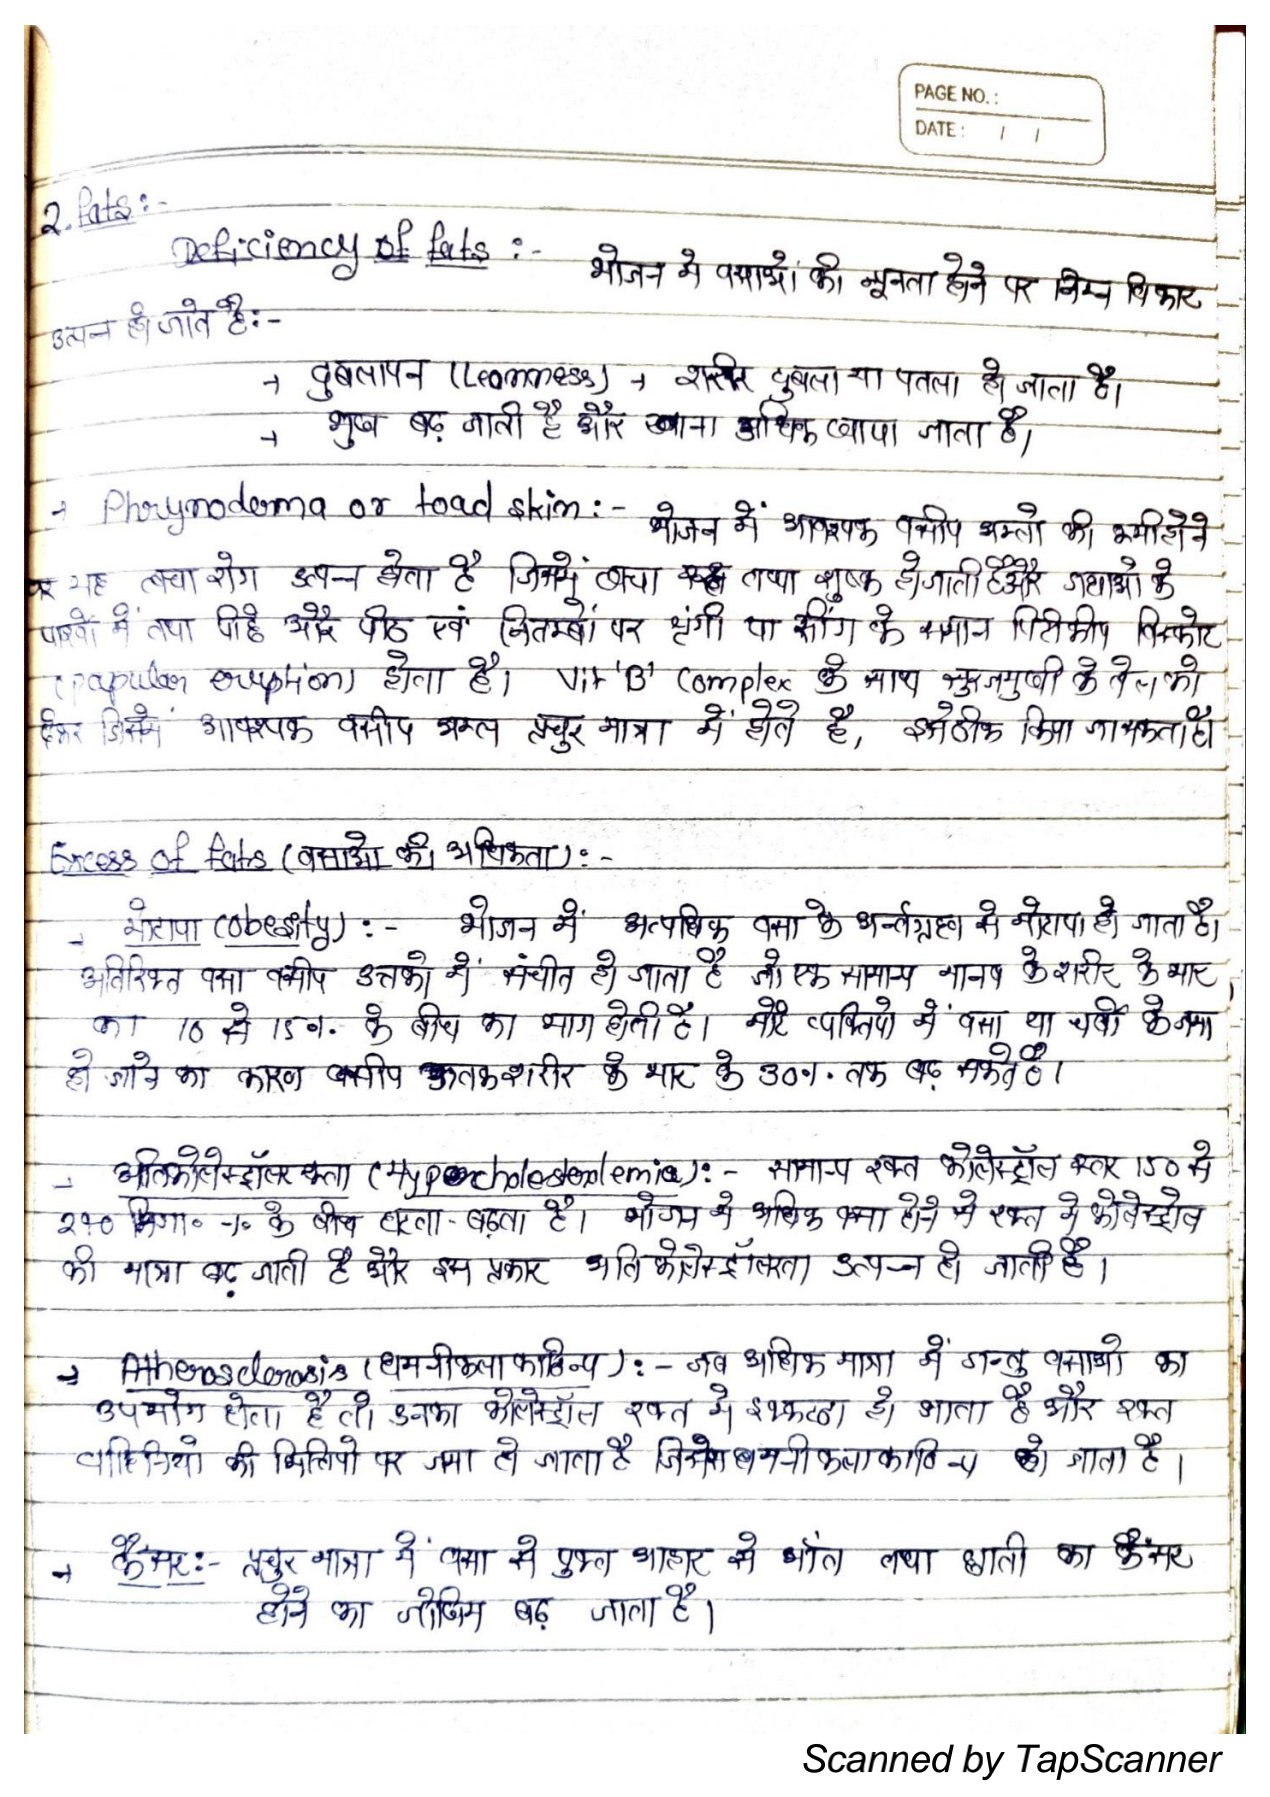 PAGE NO. :
DATE : / /
2. fats :-
Deficiency of fats :- भोजन में वसाओं की न्यूनता होने पर निम्न विकार
उत्पन्न हो जाते है:-
→ दुबलापन (Leanness) → शरीर दुबला या पतला हो जाता है।
→ भुख बढ़ जाती है और खाना अधिक खाया जाता है।
→ Phrynoderma or toad skin :- भोजन में आवश्यक वसीय अम्लो की कमी होने
पर यह त्वचा रोग उत्पन्न होता है जिसमें त्वचा तथा शुष्क हो जाती है और जंघाओ के
पार्श्वों में तथा पीछे और पीठ एवं नितम्बों पर शृंगी या सींग के समान पिटीकीय विस्फोट
(papular eruption) होता है। Vit 'B' Complex के साथ सुरजमुखी के तेल को
देकर जिसमें आवश्यक वसीय अम्ल प्रचुर मात्रा में होते है, इसे ठीक किया जा सकता है।
Excess of fats (वसाओ की अधिकता) :-
→ मोटापा (obesity) :- भोजन में अत्यधिक वसा के अर्न्तग्रहण से मोटापा हो जाता है।
अतिरिक्त वसा वसीय उत्तको में संचीत हो जाता है जो एक सामान्य मानव के शरीर के भार
का 10 से 15%. के बीच का भाग होती है। मोटे व्यक्तियो में वसा या चर्बी के जमा
हो जाने का कारण वसीय ऊतक शरीर के भार के 30%. तक बढ़ सकते है।
→ अतिकोलेस्ट्रॉलर क्तता (Hypercholesterolemia) :- सामान्य रक्त कोलेस्ट्रॉल स्तर 150 से
240 मिगा॰ -/॰ के बीच घटता-बढ़ता है। भोजन में अधिक वसा होने से रक्त मे कोलेस्ट्रोल
की मात्रा बढ़ जाती है और इस प्रकार अति कोलेस्ट्रॉलरता उत्पन्न हो जाती है।
→ Atherosclerosis (धमनीकला काठिन्य) :- जब अधिक मात्रा में जन्तु वसाओ का
उपभोग होता है तो उनका कोलेस्ट्रॉल रक्त मे इक्कठा हो जाता है और रक्त
वाहिनियो की भित्तियो पर जमा हो जाता है जिससे धमनीकलाकाठिन्य हो जाता है।
→ कैंसर:- प्रचुर मात्रा में वसा से युक्त आहार से आँत तथा छाती का कैंसर
होने का जोखिम बढ़ जाता है।
Scanned by TapScanner